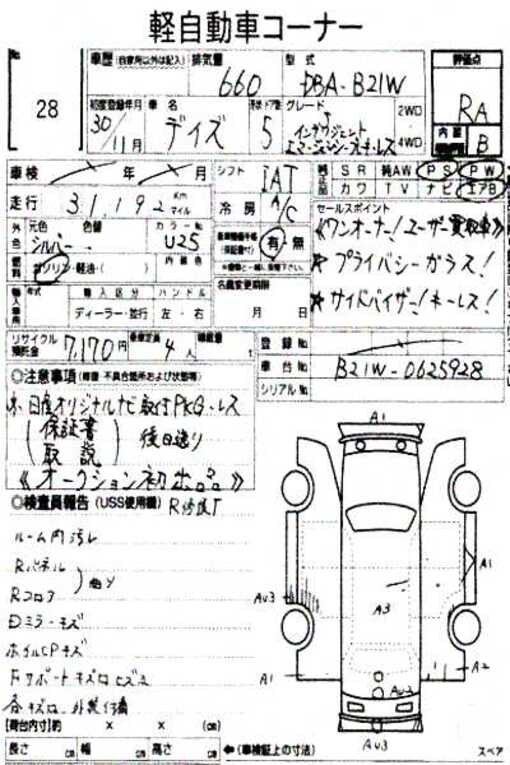 軽自動車コーナー
No
28
車歴 (自家用以外は記入) 排気量 660 型式 DBA-B21W
評価点 RA
内装 B
初度登録年月 30/11月 車名 デイズ 形状ドア数 5 グレード インテリジェント エマージェンシーブレーキ・レス 2WD 4WD
車検 年 月
シフト IAT
SR 純AW PS PW
カワ TV ナビ エアB
走行 31,192 Km マイル
冷房 A/C
セールスポイント
外色 元色 シルバー 色替 カラーNo U25
(保証書付) 有・無
《ワンオーナー!ユーザー買取車》
☆プライバシーガラス!
☆サイドバイザー!キーレス!
燃料 ガソリン・軽油・( ) 内装色
名義変更期限 月 日
輸入車 年式 輸入区分 ハンドル
ディーラー・並行 左・右
リサイクル預託金 7,170円 乗車定員 4人 積載量 t
登録No
車台No B21W-0625928
シリアルNo
◎注意事項 (修復・不具合箇所および状態等)
※日産オリジナルナビ取付PKG・レス
(保証書 取説) 後日送り
《オークション初出品》
◎検査員報告 (USS使用欄) R修歴
ルーム内汚し
Rパネル
Rコロア
Dミラーキズ
ホイルCPキズ
Fサポートキズ
各キズ
A1
A1
AU3
A3
A1
A2
AU2
AU3
[荷台内寸]約 × × (cm)
長さ cm 幅 cm 高さ cm ←(車検証上の寸法)
スペア